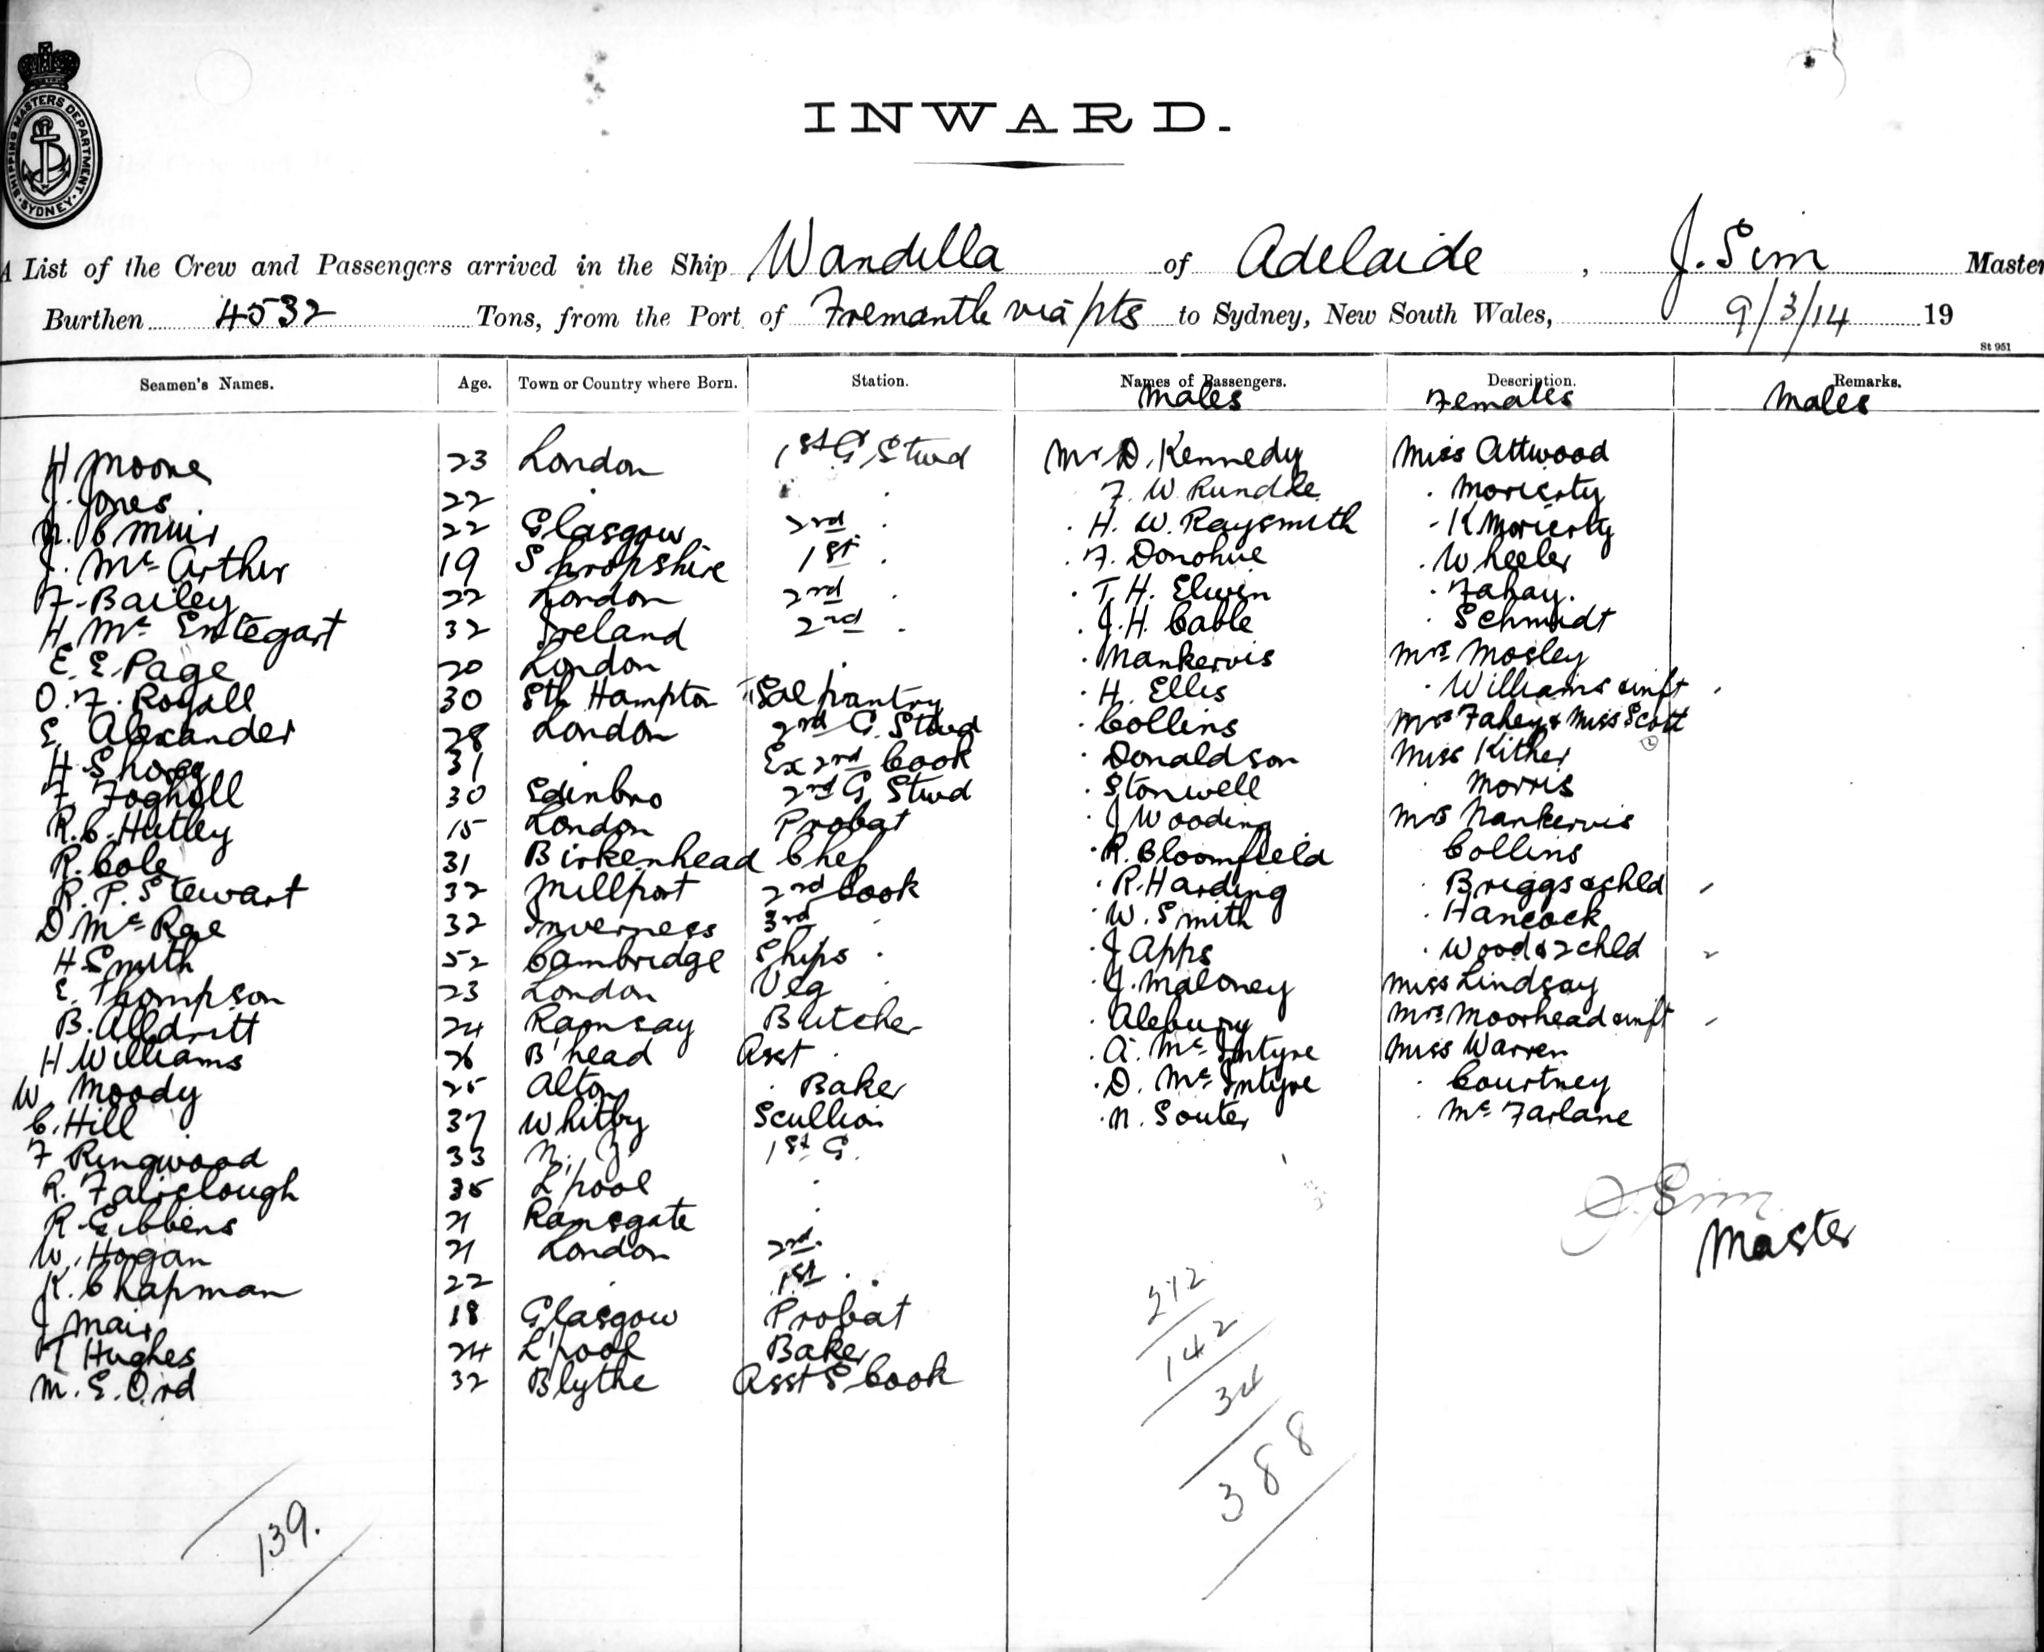 INWARD.
SHIPPING MASTERS DEPARTMENT. SYDNEY.
A List of the Crew and Passengers arrived in the Ship Wandilla of Adelaide, J. Sim Master
Burthen 4532 Tons, from the Port of Fremantle via pts to Sydney, New South Wales, 9/3/14 19
St 951
Seamen's Names. Age. Town or Country where Born. Station. Names of Passengers. Description. Remarks.
Males Females Males
H Moore 23 London 1st G Stwd Mr D. Kennedy Miss Attwood
J. Jones 22 . . F. W. Rundle . Morierty
C Muir 22 Glasgow 2nd . . H. W. Raysmith - K Morierty
J. Mc Arther 19 Shropshire 1st . . F. Donohue . Wheeler
F. Bailey 22 London 2nd . . T. H. Elwin . Fahay.
H. Mc Entegart 32 Ireland 2nd . . J. H. Cable . Schmidt
E. E. Page 20 London . . Nankervis Mrs Mosley
O. F. Royall 30 Sth Hampton Sal pantry . H. Ellis . Williams & inft
E. Alexander 28 London 2nd G. Stwd . Collins Mrs Fahey & Miss Scott
H 31 . Ex 2nd Cook . Donaldson Miss Kither
F. Foghill 30 Edinbro 2nd G Stwd . Stonwell . Morris
R. C. Hutley 15 London Probat . J Wooding Mrs Nankervis
R. Cole 31 Birkenhead Chef . R. Bloomfield Collins
R. P. Stewart 32 Millport 2nd Cook . R. Harding . Briggs & chld
D Mc Rae 32 Inverness 3rd . . W. Smith . Hancock
H Smith 52 Cambridge Ships . . J Apps . Wood & 2 chld
E. Thompson 23 London Veg . . J. Maloney Miss Lindsay
B. Alldritt 24 Ramsay Butcher . Alebury Mrs Moorhead & inft
H Williams 26 B'head Asst . . A. Mc Intyre Miss Warren
W. Moody 25 Alton . Baker . D. Mc Intyre . Courtney
C. Hill 37 Whitby Scullion . N. Souter . Mc Farlane
F Ringwood 33 N. Z. 1st G.
R. Fairclough 35 L'pool .
R. Gibbens 21 Ramsgate .
W. Hogan 21 London 2nd .
K. Chapman 22 . 1st . .
J Mair 18 Glasgow Probat
T Hughes 24 L'pool Baker
M. E. Ord 32 Blythe Asst S Cook
J. Sim
Master
212
142
34
388
139.